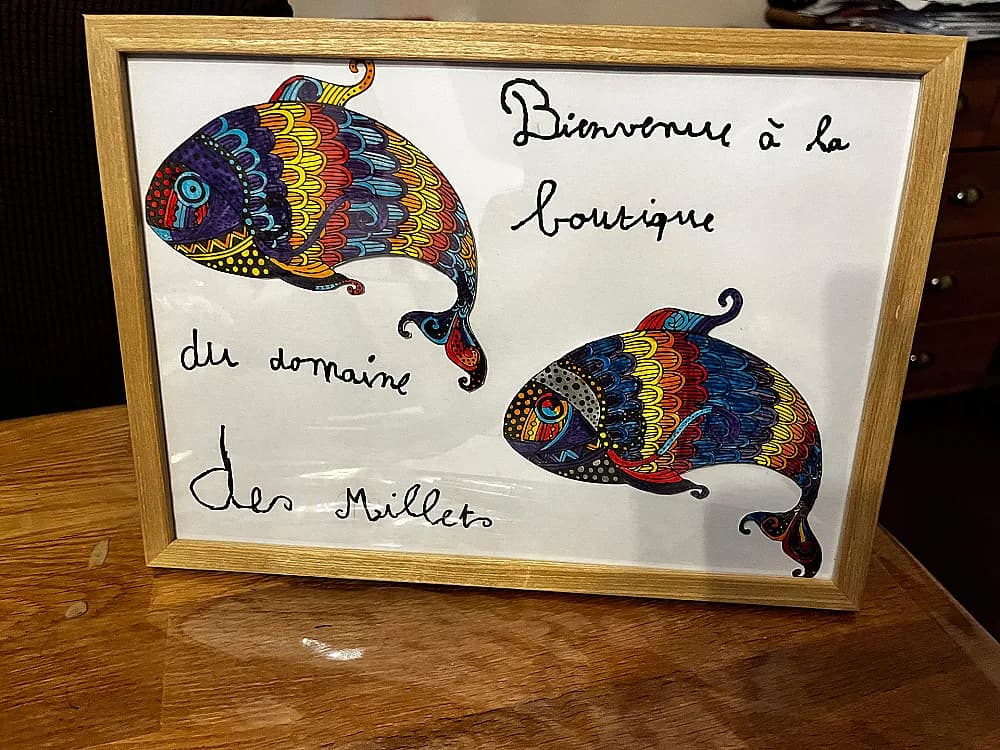 Bienvenue à la
boutique
du domaine
des Millets